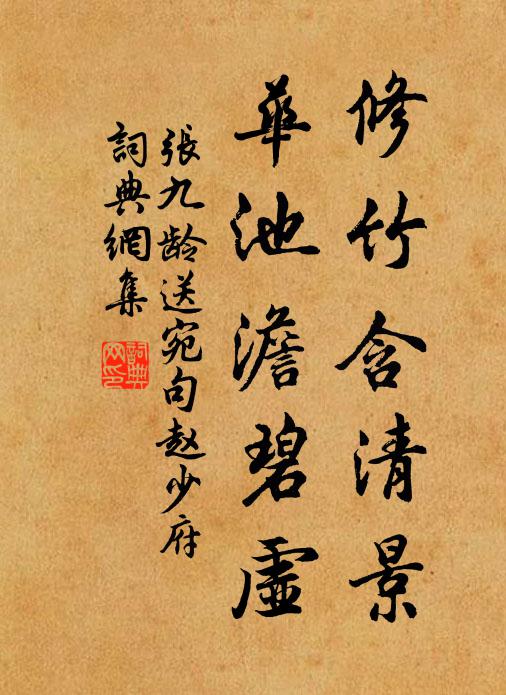 修竹含清景
華池澹碧虛
張九龄送宛句赵少府
詞典網集
詞典網印